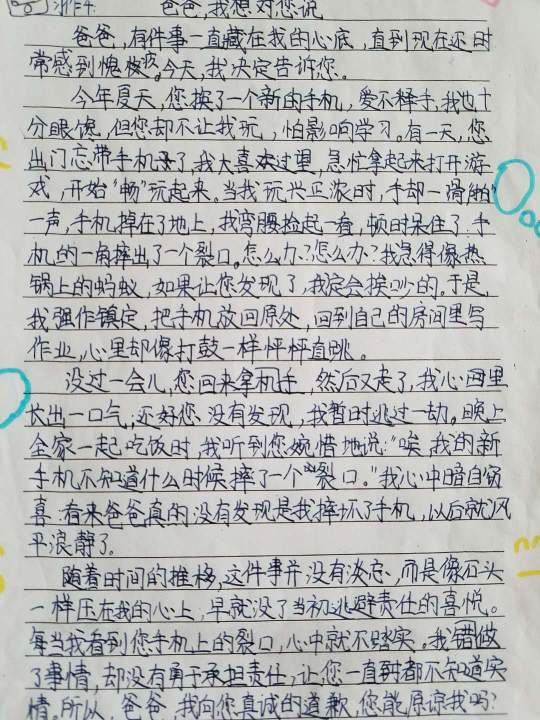 习作4 爸爸,我想对您说
爸爸,有件事一直藏在我的心底,直到现在还时
常感到愧疚。今天,我决定告诉您。
今年夏天,您换了一个新的手机,爱不释手,我也十
分眼馋,但您却不让我玩,怕影响学习。有一天,您
出门忘带手机了,我大喜过望,急忙拿起来打开游
戏,开始“畅”玩起来。当我玩兴正浓时,手却一滑“啪”
一声,手机掉在了地上,我弯腰捡起一看,顿时呆住了,手
机的一角摔出了一个裂口。怎么办?怎么办?我急得像热
锅上的蚂蚁,如果让您发现了,我定会挨吵的。于是,
我强作镇定,把手机放回原处,回到自己的房间里写
作业,心里却像打鼓一样怦怦直跳。
没过一会儿,您回来拿机手,然后又走了,我心里
长出一口气,还好您没有发现,我暂时逃过一劫。晚上
全家一起吃饭时,我听到您惋惜地说:“唉,我的新
手机不知道什么时候摔了一个“裂口。”我心中暗自窃
喜:看来爸爸真的没有发现是我摔坏了手机,以后就风
平浪静了。
随着时间的推移,这件事并没有淡忘,而是像石头
一样压在我的心上,早就没了当初逃避责任的喜悦。
每当我看到您手机上的裂口,心中就不踏实。我错做
了事情,却没有勇于承担责任,让您一直到都不知道实
情。所以,爸爸,我向您真诚的道歉,您能原谅我吗?